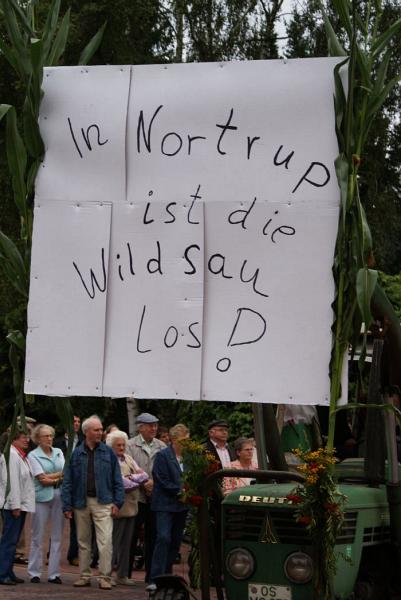 In Nortrup
ist die
Wildsau
Los!
DEUTZ
OS